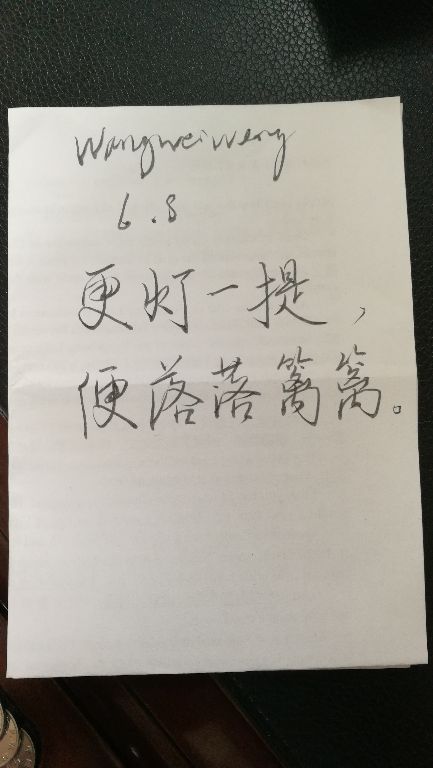 Wangweiweng
6.8
更灯一提，
便落落篱篱。